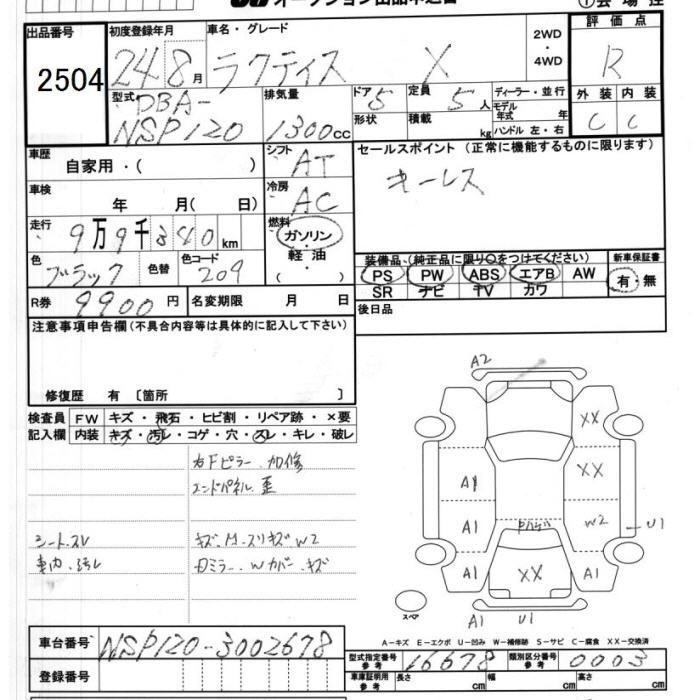 オークション出品申込書
出品番号 2504
初度登録年月 24 8月
車名・グレード ラクティス X
2WD・4WD
評価点 R
外装 C 内装 C
型式 DBA-NSP120
排気量 1300cc
ドア 5 形状
定員 5人 積載 kg
ディーラー・並行
モデル年式 年
ハンドル 左・右
車歴 自家用・( )
シフト AT
セールスポイント (正常に機能するものに限ります)
キーレス
車検 年 月( 日)
冷房 AC
走行 9万9千380km
燃料 ガソリン・軽油・( )
色 ブラック 色替 色コード 209
装備品 (純正品に限り○をつけてください)
PS PW ABS エアB AW
SR ナビ TV カワ
新車保証書 有・無
R券 9900円 名変期限 月 日
後日品
注意事項申告欄(不具合内容等は具体的に記入して下さい)
修復歴 有 〔箇所 〕
検査員記入欄
FW キズ・飛石・ヒビ割・リペア跡・×要
内装 キズ・汚レ・コゲ・穴・スレ・キレ・破レ
右Fピラー.加修
エンドパネル.歪
シート.スレ
キズ.M.スリキズ W2
車内.汚レ
Dミラー.Wカバー.キズ
A2
XX
A1 XX
A1 W2 U1
A1 XX A1
スペア
A1 U1
A-キズ E-エクボ U-凹み W-補修跡 S-サビ C-腐食 XX-交換済
車台番号 NSP120-3002678
型式指定番号 参考 16678
類別区分番号 参考 0003
登録番号
車庫証明用 参考 長さ cm 幅 cm 高さ cm